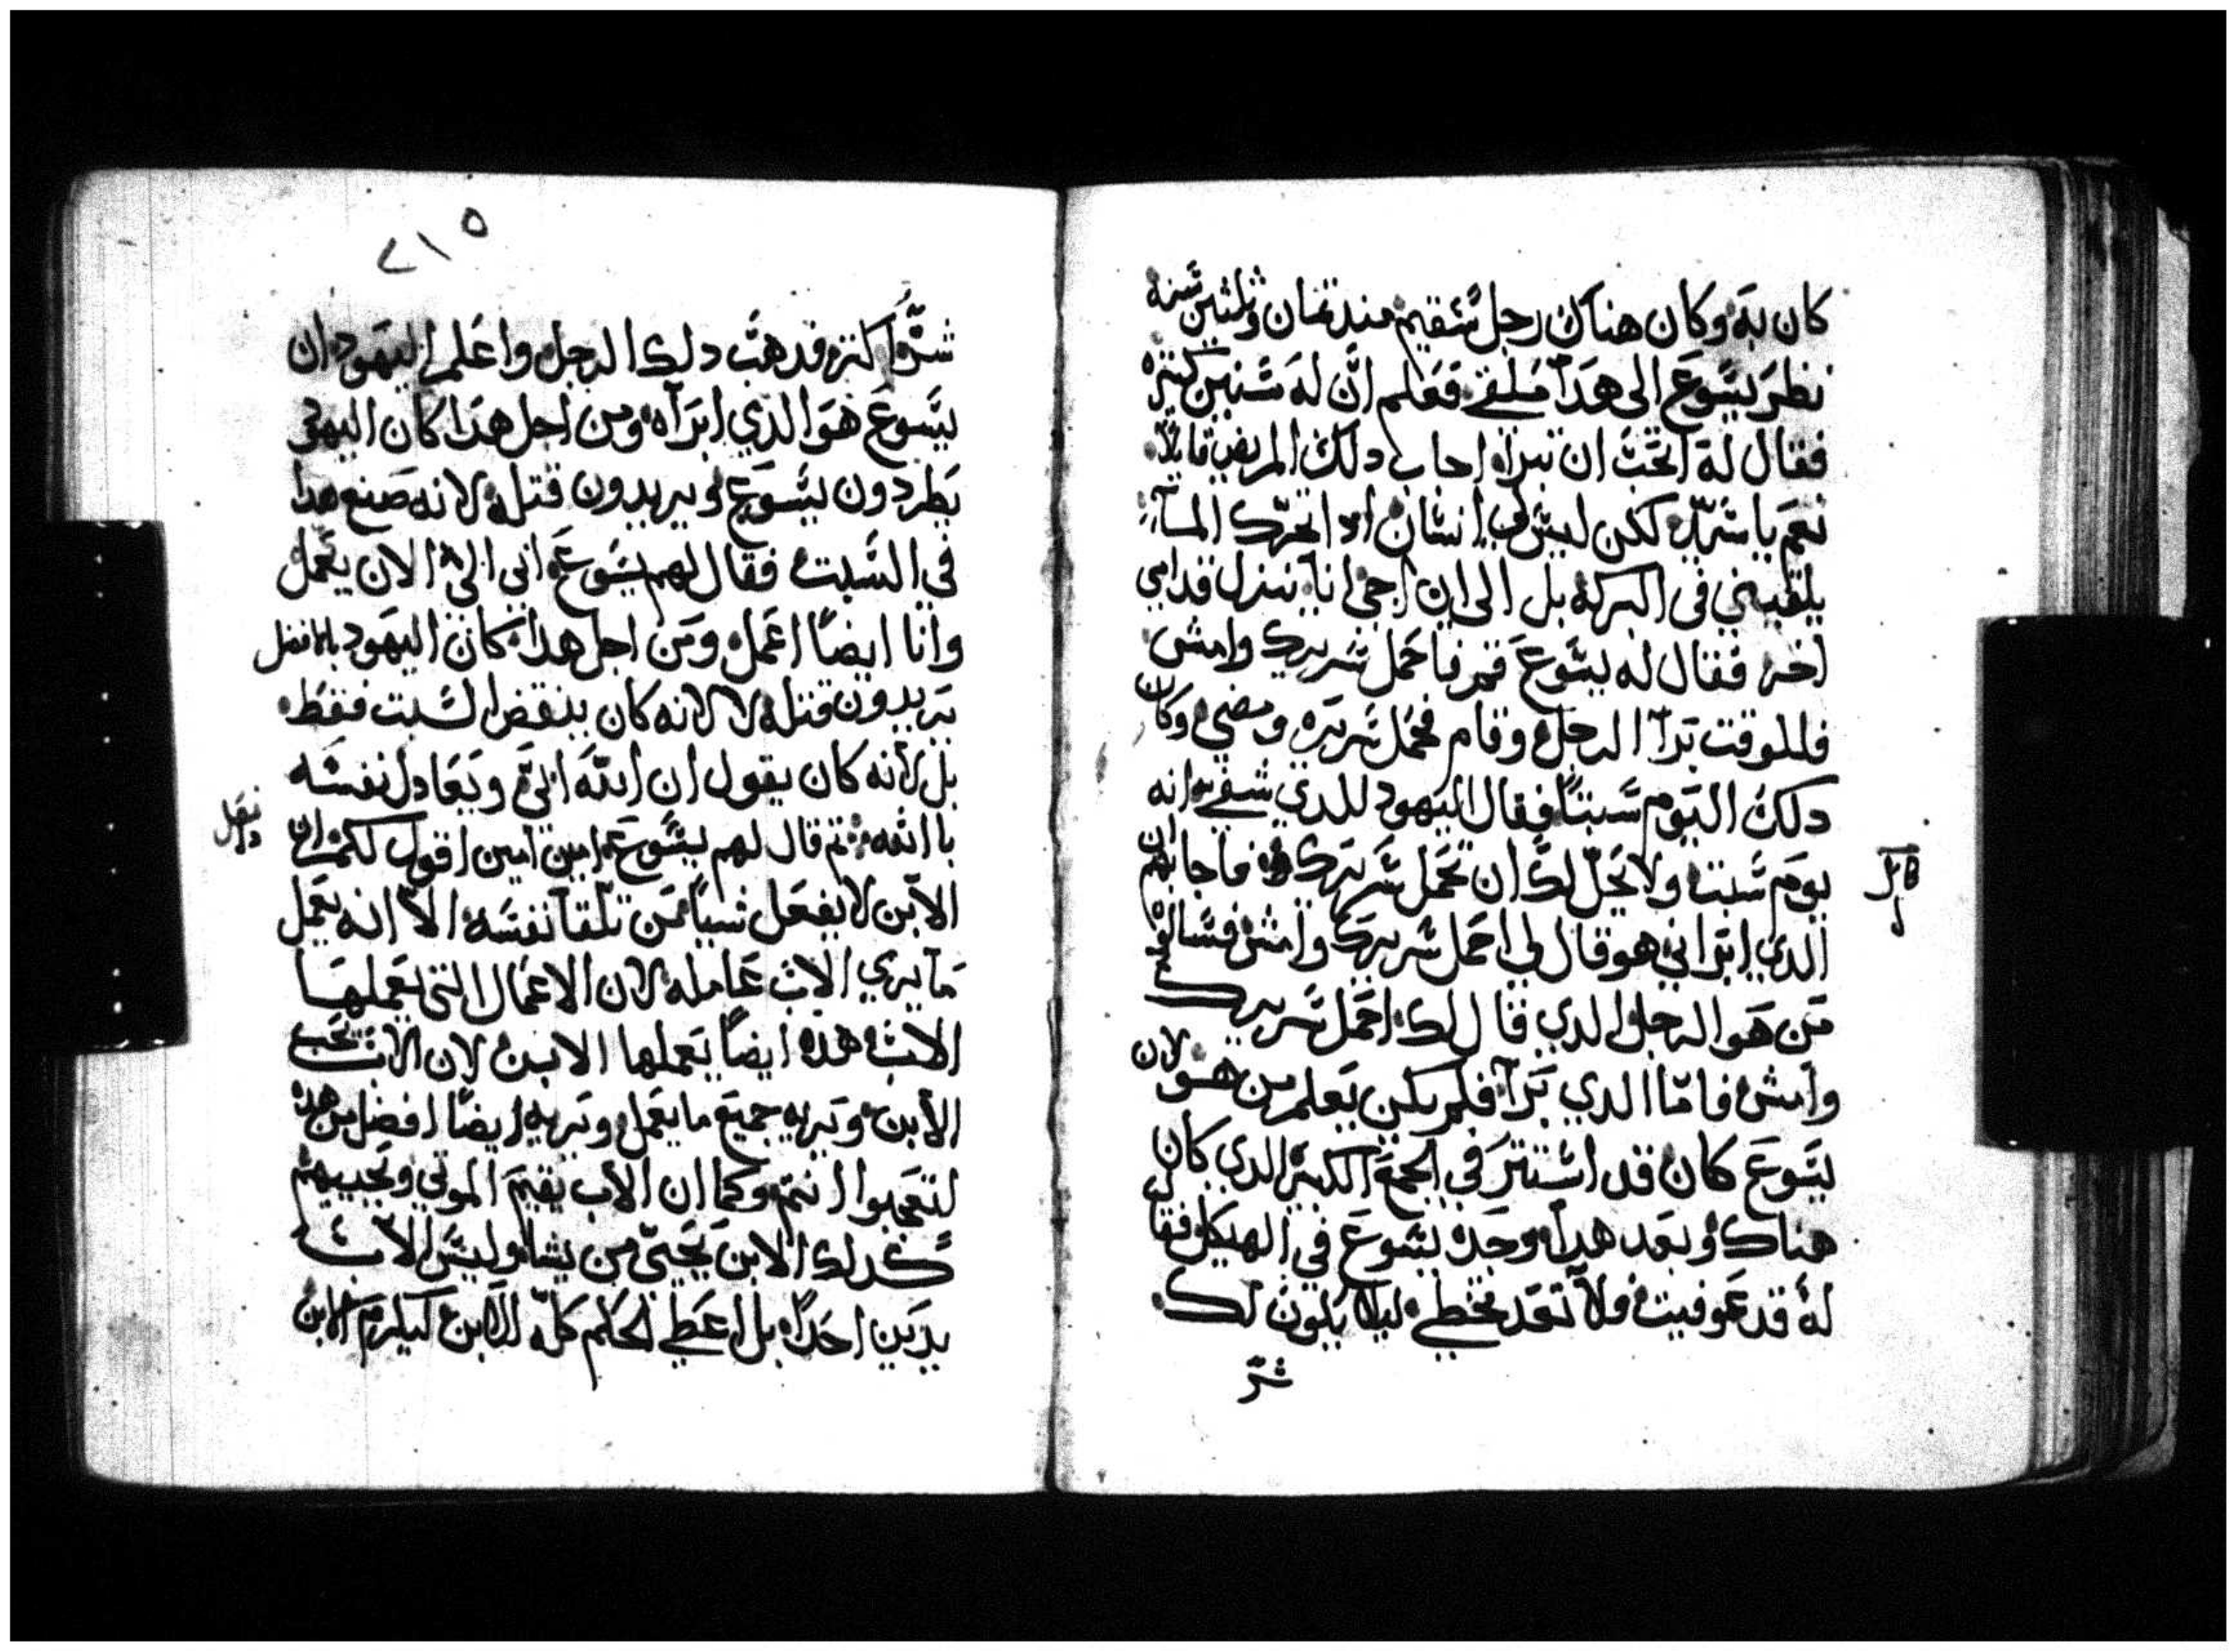 كان به وكان هناك رجل سقيم مند تمان وثلثين سنه
نظر يسوع الى هدا ملقى فعلم ان له سنين كتيره
فقال له اتحب ان تبرا اجاب دلك المريض قايلا
نعم يا سيد لكن ليس لي انسان ادا تحرك الما
يلقيني في البركه بل الى ان اجي انا ينزل قدامي
اخر فقال له يسوع قم فاحمل سريرك وامش
فللوقت برا الرجل وقام فحمل سريره ومضى وكان
دلك اليوم سبتا فقال اليهود للدي شفي انه
يوم سبت ولا يحل لك ان تحمل سريرك فاجابهم ان
الدي ابراني هو قال لي احمل سريرك وامش فسالوه
من هو الرجل الدي قال لك احمل سريرك
وامش فاما الدي برا فلم يكن يعلم من هو لان
يسوع كان قد استتر في الجمع الكتير الدي كان
هناك وبعد هدا وجده يسوع في الهيكل فقال
له قد عوفيت فلا تعد تخطي ليلا يكون لك
شر
٢١٥
شرا اكتر فدهب دلك الرجل واعلم اليهود ان
يسوع هو الدي ابراه ومن اجل هدا كان اليهود
يطردون يسوع ويريدون قتله لانه صنع هدا
في السبت فقال لهم يسوع ابي الى الان يعمل
وانا ايضا اعمل ومن اجل هدا كان اليهود بالافضل
يريدون قتله لا لانه كان ينقض السبت فقط
بل لانه كان يقول ان الله ابي ويعادل نفسه
باالله تم قال لهم يسوع امين امين اقول لكم ان
الابن لا يفعل شيا من تلقا نفسه الا انه يعمل
ما يري الاب عامله لان الاعمال التي يعملها
الاب هده ايضا يعملها الابن لان الاب يحب
الابن ويريه جميع ما يعمل ويريه ايضا افضل من هده
لتعجبوا انتم وكما ان الاب يقيم الموتى ويحييهم
كدلك الابن يحيي من يشا وليس الاب
يدين احدا بل اعطي الحكم كله للابن ليكرم الابن